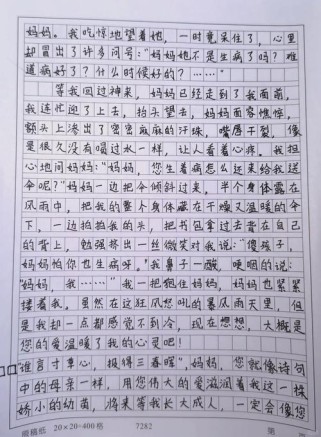 妈妈。我吃惊地望着她，一时竟呆住了，心里
却冒出了许多问号：“妈妈她不是生病了吗？难
道病好了？什么时候好的？……”
等我回过神来，妈妈已经走到了我面前，
我连忙迎了上去，抬头望去，妈妈面容憔悴，
额头上渗出了密密麻麻的汗珠，嘴唇干裂，像
是很久没有喝过水一样，让人看着心疼。我担
心地问妈妈：“妈妈，您生着病怎么还来给我送
伞呢？”妈妈一边把伞倾斜过来，半个身体露在
风雨中，把我的整个身体藏在干燥又温暖的伞
下，一边拍拍我的头，把书包拿过去背在自己
的背上，勉强挤出一丝微笑对我说：“傻孩子，
妈妈怕你也生病呀。”我鼻子一酸，哽咽的说：
“妈妈，我……”我一把抱住妈妈，妈妈也紧紧
搂着我。虽然在这狂风怒吼的暴风雨天里，但
是我却一点都感觉不到冷，现在想想，大概是
您的爱温暖了我的心灵吧！
谁言寸草心，报得三春晖”，妈妈，您就像诗句
中的母亲一样，用您伟大的爱滋润着我这一棵
娇小的幼苗，将来等我长大成人，一定会像您
稿纸 20×20=400格 7282